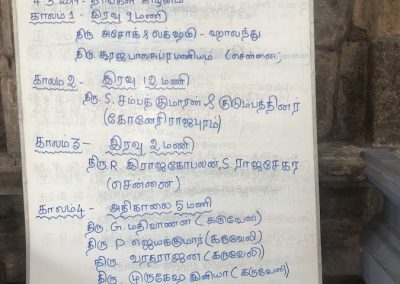 4.3.2019 - திங்கள் கிழமை
காலம் 1 - இரவு 9 மணி
திரு அசோக் & லக்ஷ்மி - ஹாலந்து
திரு சூரஜ் பாலசுப்ரமணியம் (சென்னை)
காலம் 2 - இரவு 12 மணி
திரு. S. சம்பத் குமாரன் & குடும்பத்தினர்
(கோனேரிராஜபுரம்)
காலம் 3 - இரவு 2 மணி
திரு. R. இராஜகோபாலன், S. ராஜசேகர்
(சென்னை)
காலம் 4 - அதிகாலை 5 மணி
திரு G. மதிவாணன் (கருவேலி)
திரு P ஜெயக்குமார் (கருவேலி)
திரு. வரதராஜன் (கருவேலி)
திரு. முருகேஷ் இனியா (கருவேலி)